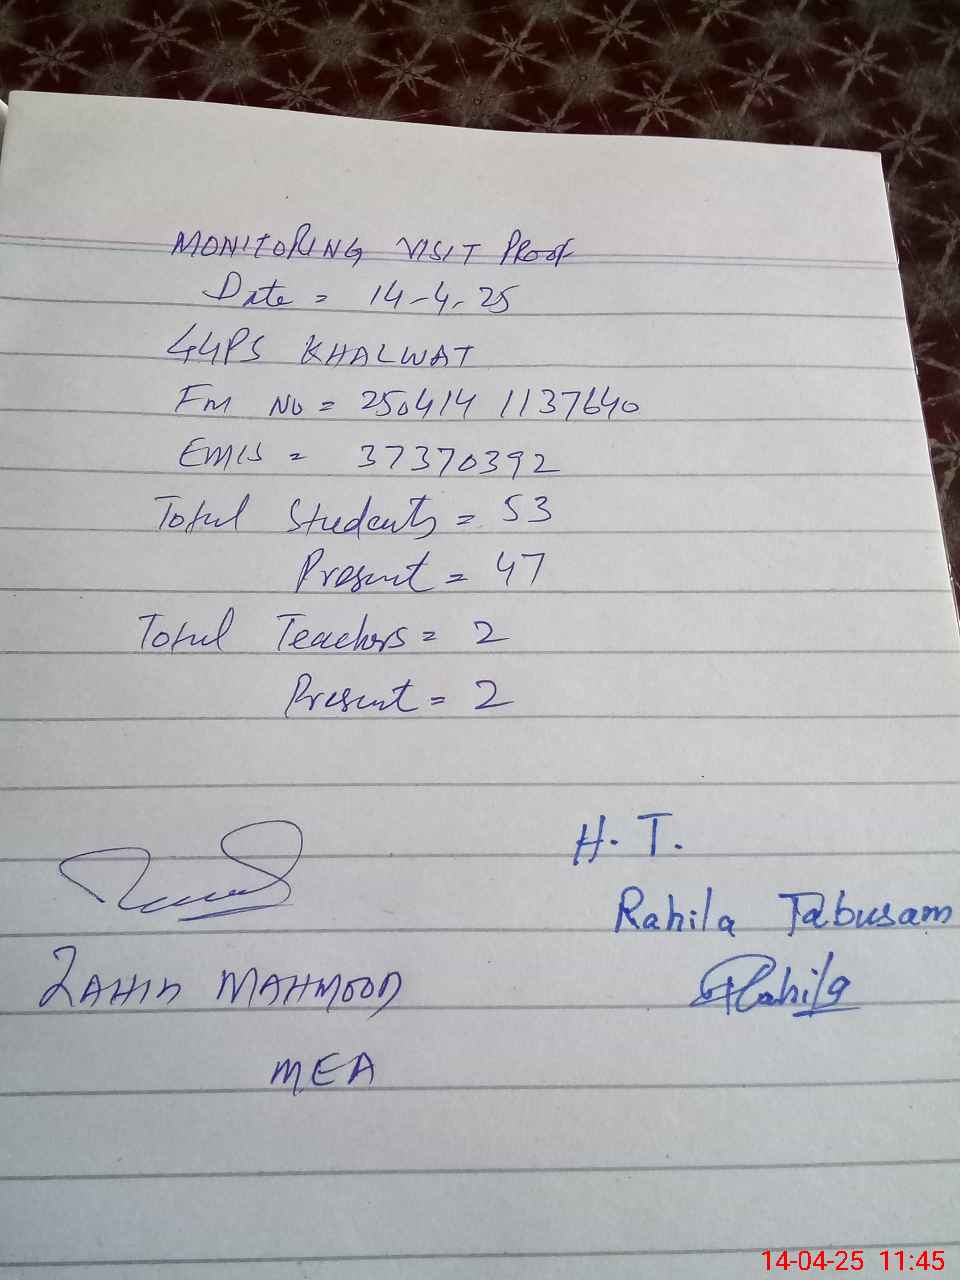 MONITORING VISIT PROOF
Date = 14-4-25
GGPS KHALWAT
Fm No = 250414 1137640
EMIS = 37370392
Total Students = 53
Present = 47
Total Teachers = 2
Present = 2
H. T.
Rahila Tabusam
Rahila
ZAHID MAHMOOD
MEA
14-04-25 11:45